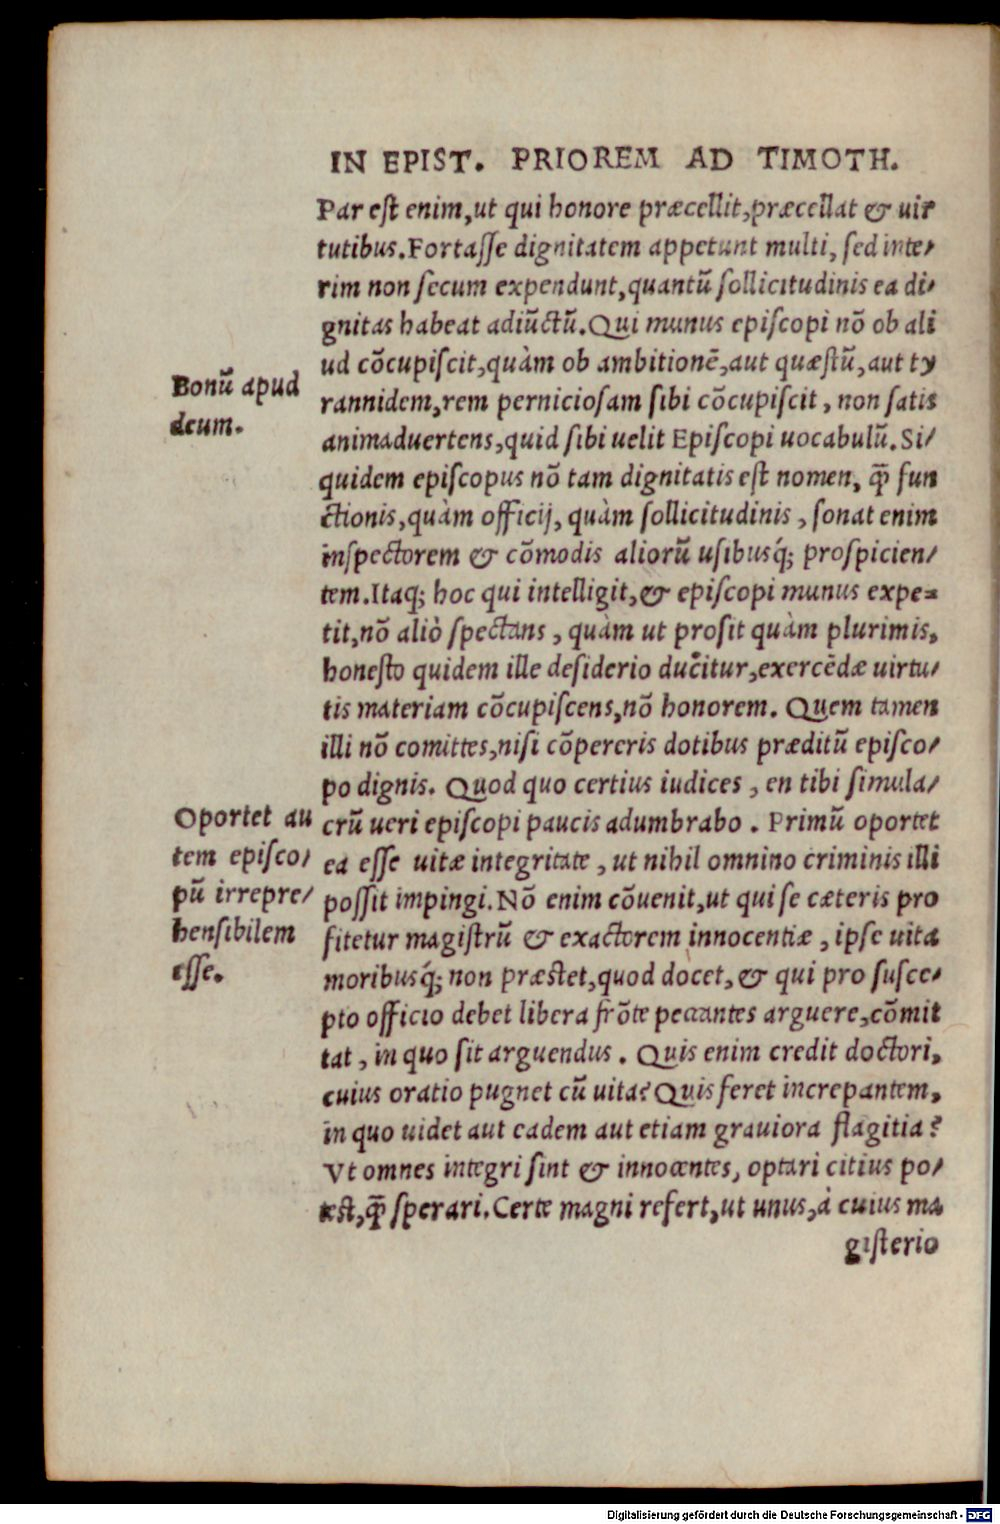 IN EPIST. PRIOREM AD TIMOTH.
Par eſt enim, ut qui honore præcellit, præcellat & uir
tutibus. Fortaſſe dignitatem appetunt multi, ſed inte/
rim non ſecum expendunt, quantũ ſollicitudinis ea di/
gnitas habeat adiũctũ. Qui munus epiſcopi nõ ob ali
ud cõcupiſcit, quàm ob ambitionẽ, aut quæſtũ, aut ty
Bonũ apud
deum.
rannidem, rem pernicioſam ſibi cõcupiſcit, non ſatis
animaduertens, quid ſibi uelit Epiſcopi uocabulũ. Si/
quidem epiſcopus nõ tam dignitatis eſt nomen, q̃ fun
ctionis, quàm officij, quàm ſollicitudinis, ſonat enim
inſpectorem & cõmodis aliorũ uſibusq́; proſpicien/
tem. Itaq; hoc qui intelligit, & epiſcopi munus expe=
tit, nõ aliò ſpectans, quàm ut proſit quàm plurimis,
honeſto quidem ille deſiderio ducitur, exercẽdæ uirtu/
tis materiam cõcupiſcens, nõ honorem. Quem tamen
illi nõ comittes, niſi cõpereris dotibus præditũ epiſco/
po dignis. Quod quo certius iudices, en tibi ſimula/
Oportet au
tem epiſco/
pũ irrepre/
henſibilem
eſſe.
crũ ueri epiſcopi paucis adumbrabo. Primũ oportet
ea eſſe uitæ integritate, ut nihil omnino criminis illi
poſſit impingi. Nõ enim cõuenit, ut qui ſe cæteris pro
fitetur magiſtrũ & exactorem innocentiæ, ipſe uita
moribusq́; non præſtet, quod docet, & qui pro ſuſce/
pto officio debet libera frõte peccantes arguere, cõmit
tat, in quo ſit arguendus. Quis enim credit doctori,
cuius oratio pugnet cũ uita? Quis feret increpantem,
in quo uidet aut eadem aut etiam grauiora flagitia?
Vt omnes integri ſint & innocentes, optari citius po/
teſt, q̃ ſperari. Certe magni refert, ut unus, à cuius ma
giſterio
Digitalisierung gefördert durch die Deutsche Forschungsgemeinschaft - DFG